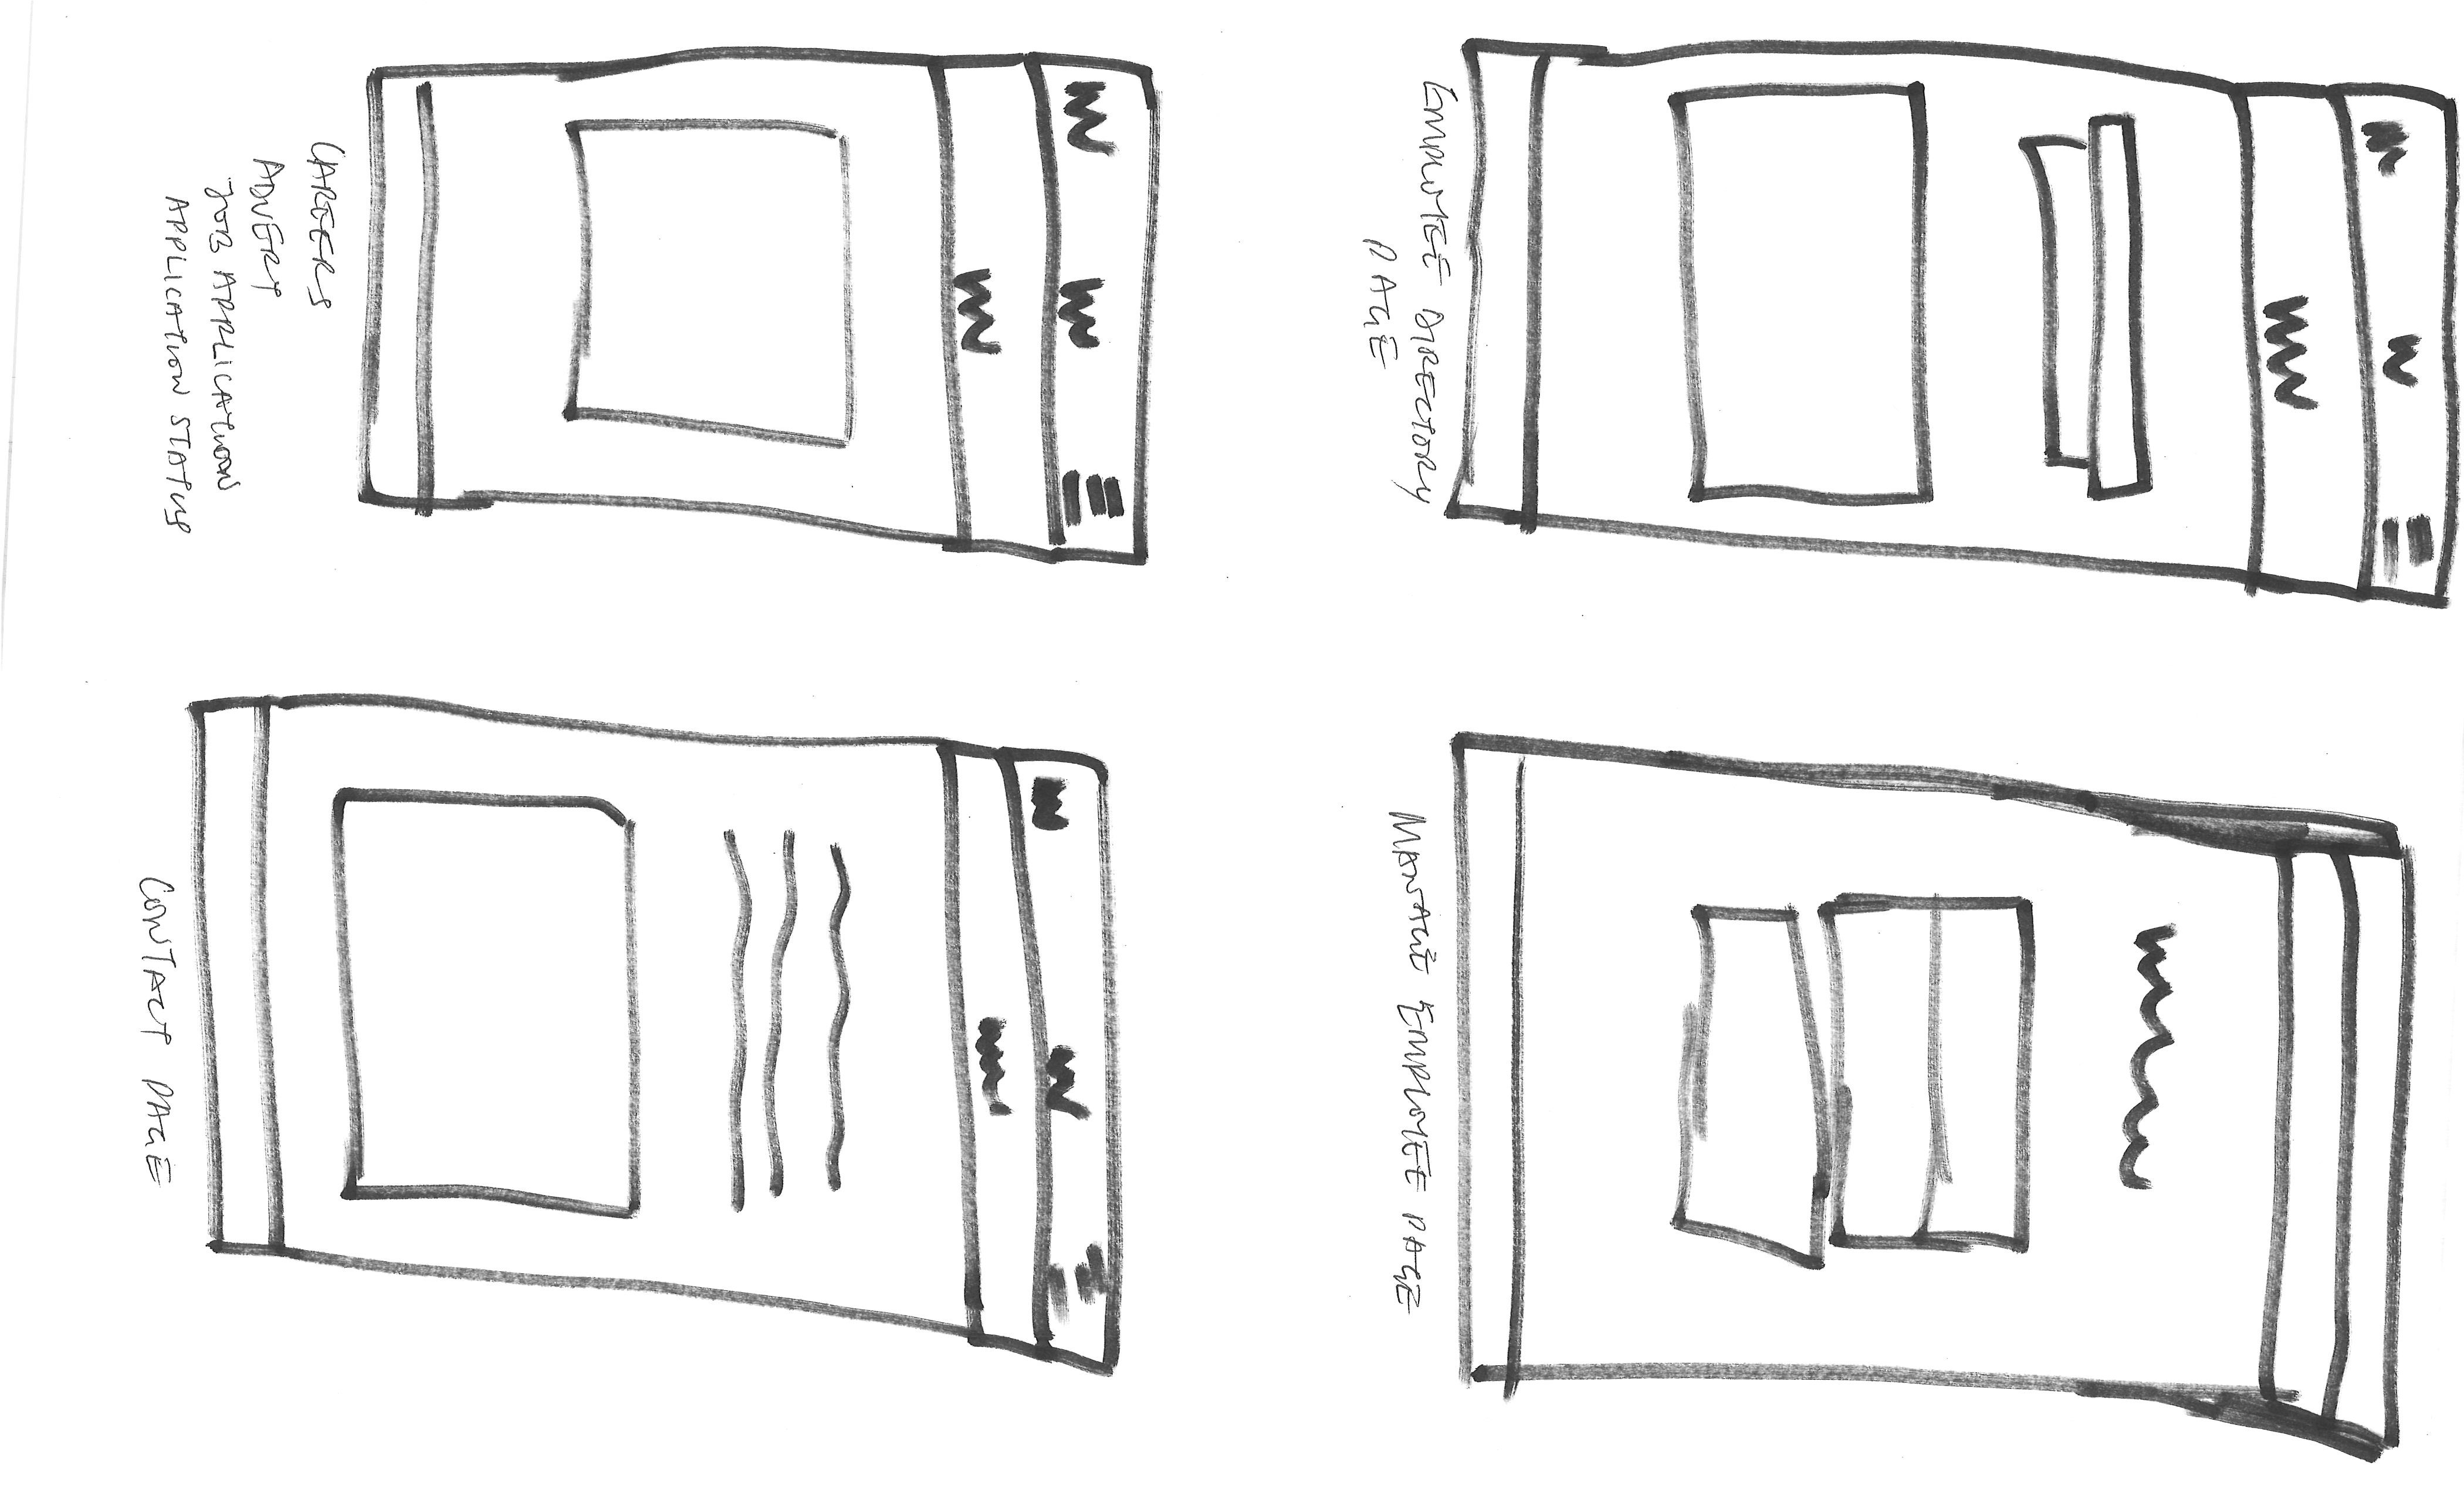 EMPLOYEE DIRECTORY
PAGE
MANAGE EMPLOYEE PAGE
CAREERS
ADVERT
JOB APPLICATION
APPLICATION STATUS
CONTACT PAGE